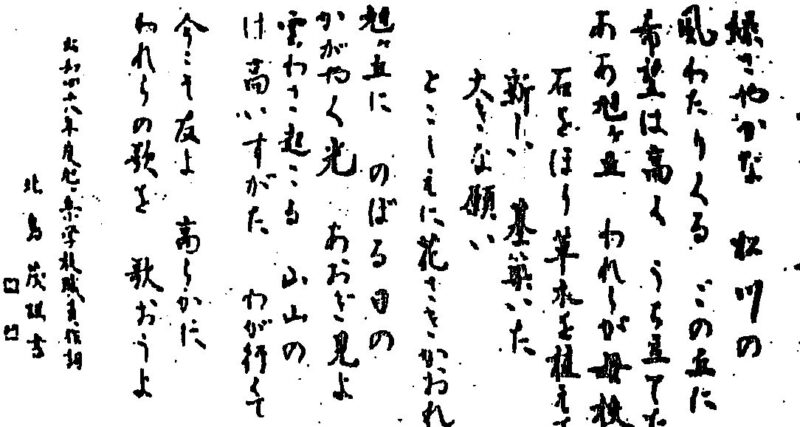 緑さやかな 松川の
風わたりくる この丘に
希望は高く うち立てた
ああ旭ヶ丘 われらが母校
石をほり草木を植えて
新しい 基築いた
大きな願い
とこしえに花さきかおれ
旭ヶ丘に のぼる日の
かがやく光 あおぎ見よ
雲わき起こる 山山の
け高いすがた わが行くて
今こそ友よ 高らかに
われらの歌を 歌おうよ
昭和四十八年度旭ヶ丘学校職員作詞
北島